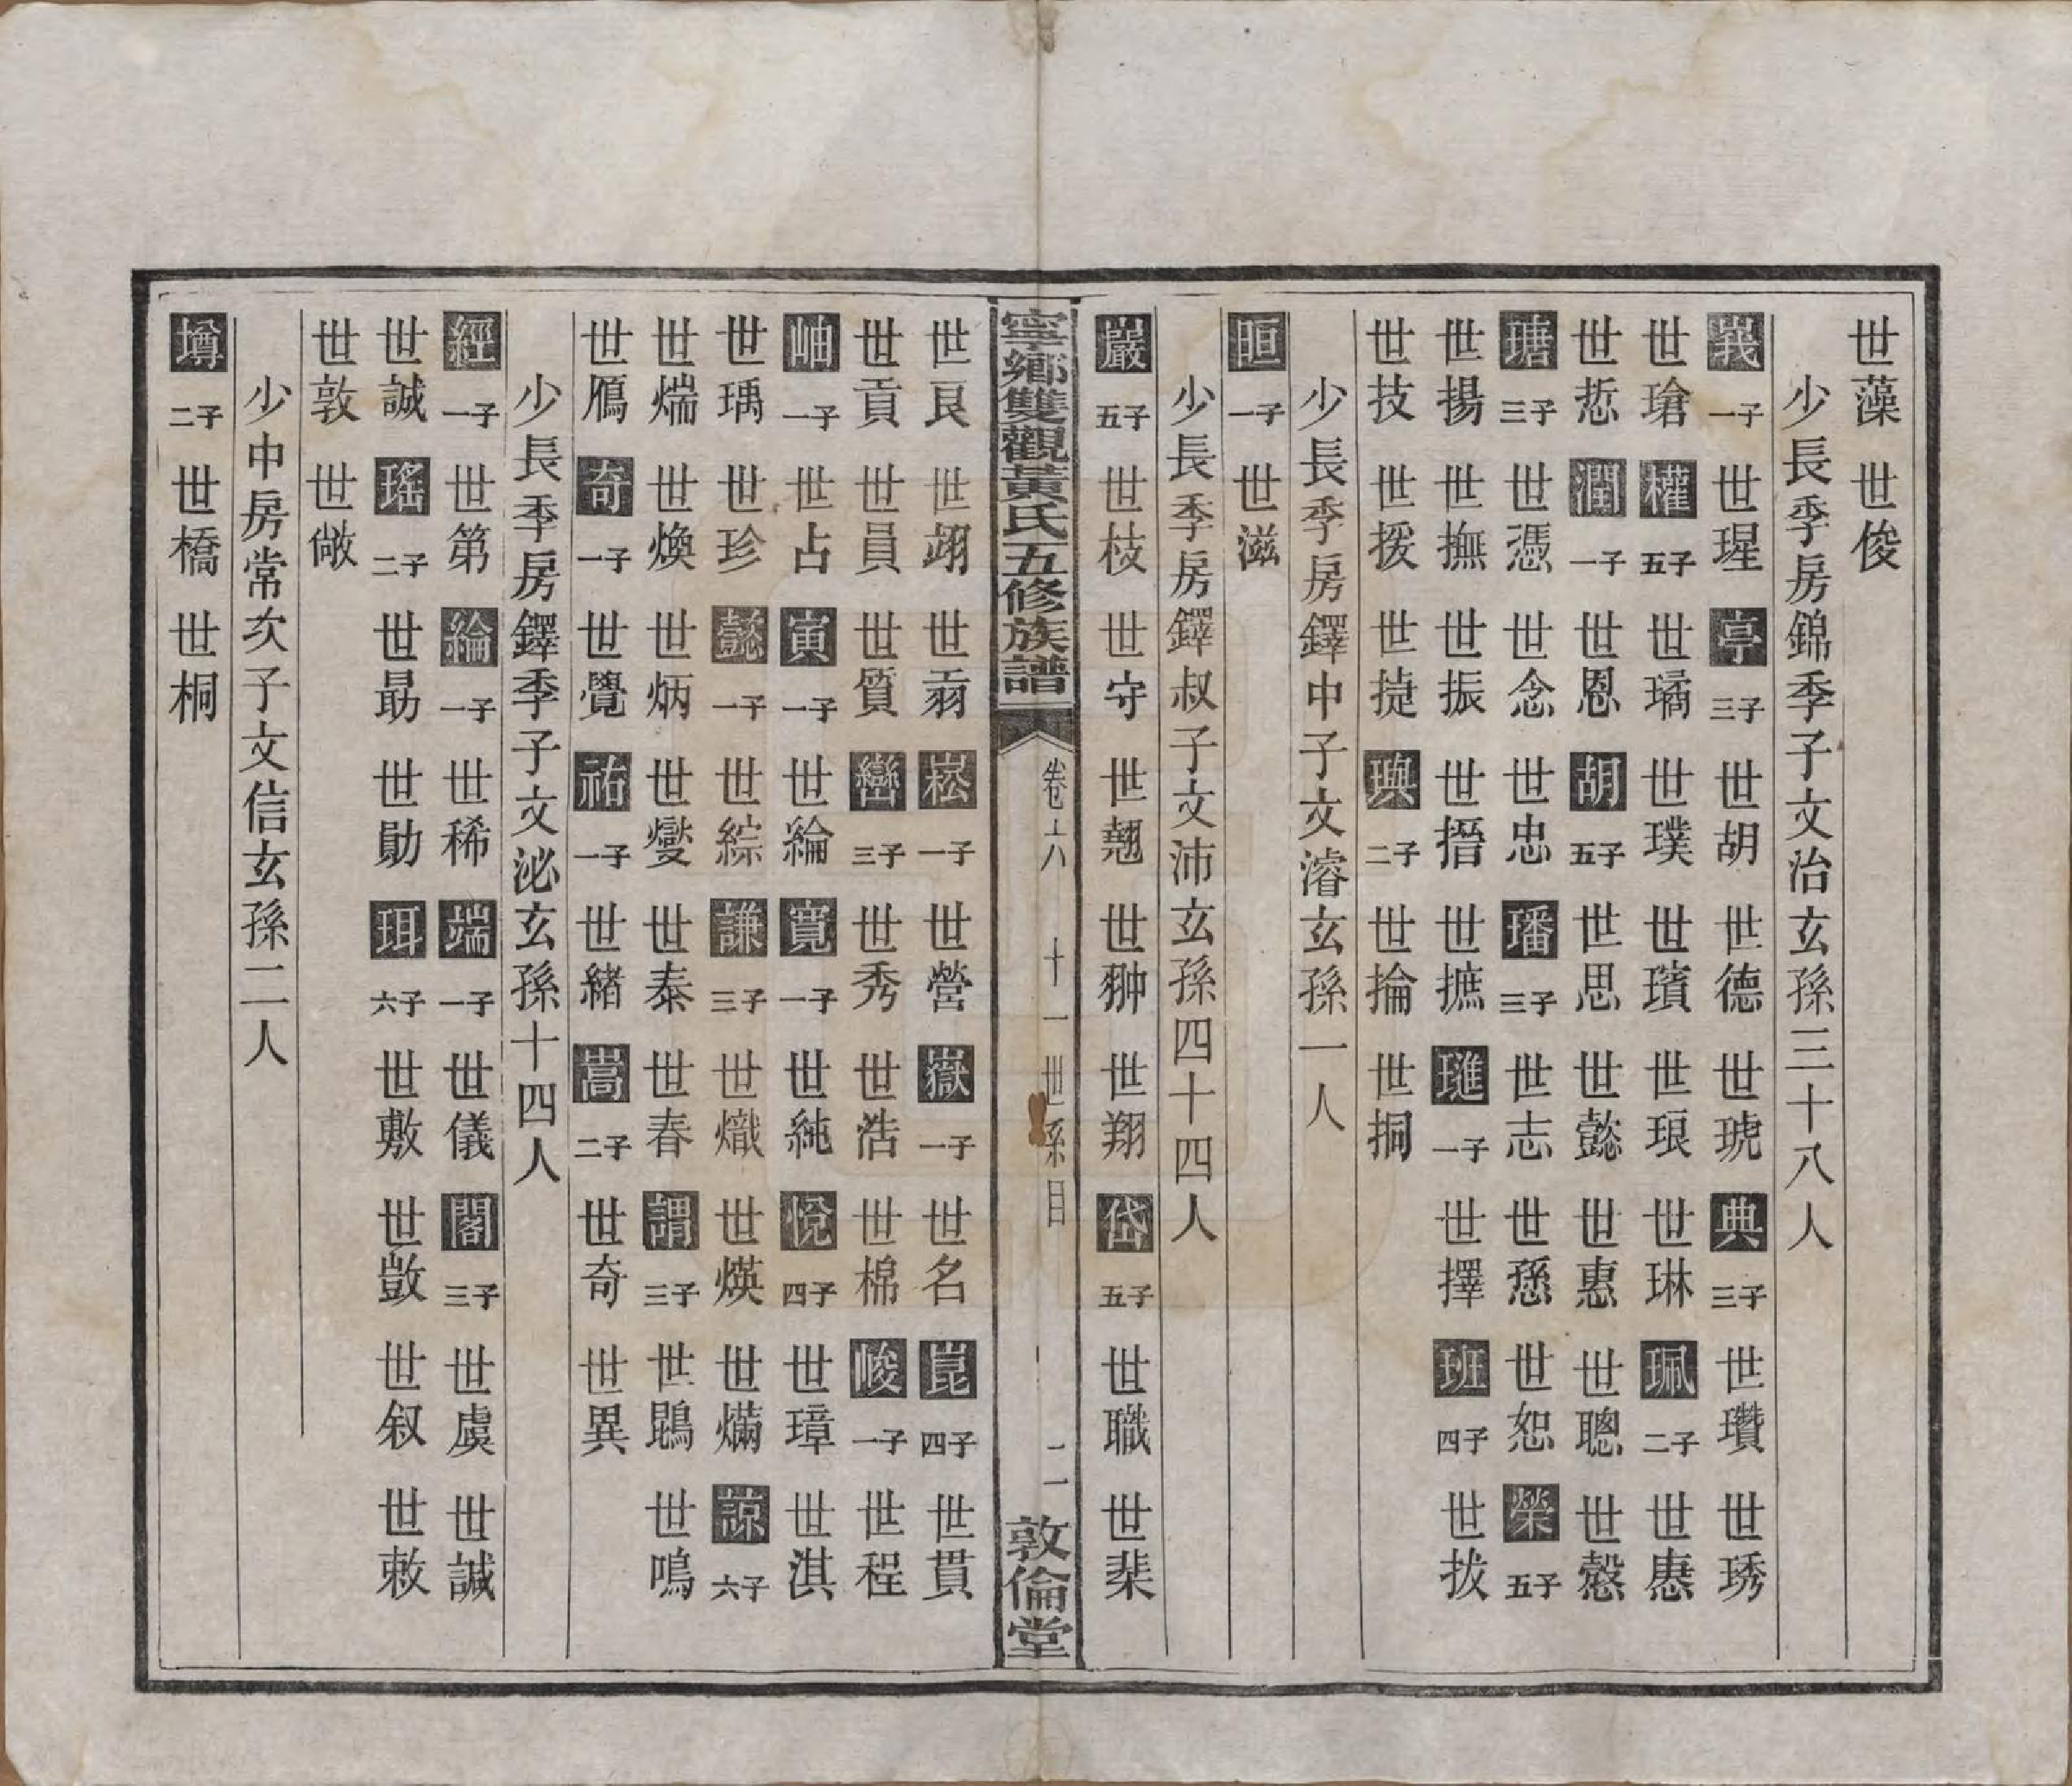 世藻 世俊
少長季房錦季子文治玄孫三十八人
峩一子 世瑆 亭三子 世胡 世德 世琥 典三子 世瓚 世琇
世瑲 權五子 世璚 世璞 世璸 世琅 世琳 珮二子 世惪
世悊 潤一子 世恩 胡五子 世思 世懿 世惠 世聰 世慤
瑭三子 世憑 世念 世忠 璠三子 世志 世慦 世恕 榮五子
世揚 世撫 世振 世搢 世摭 璡一子 世擇 班四子 世拔
世技 世授 世捷 璵二子 世掄 世挏
少長季房鐸中子文濬玄孫一人
晅一子 世滋
少長季房鐸叔子文沛玄孫四十四人
巖五子 世枝 世守 世翹 世翀 世翔 岱五子 世職 世棐
寧鄉雙觀黃氏五修族譜 卷六 十一世系目 二 敦倫堂
世艮 世翊 世翡 崧一子 世營 嶽一子 世名 崑四子 世貫
世貢 世員 世質 巒三子 世秀 世浩 世棉 峻一子 世程
岫一子 世占 寅一子 世綸 寬一子 世純 悅四子 世璋 世淇
世瑀 世珍 懿一子 世綜 謙三子 世熾 世煐 世㒼 諒六子
世煓 世煥 世炳 世燮 世泰 世春 謂三子 世鵾 世鳴
世鴈 奇一子 世覺 祐一子 世緒 嵩二子 世奇 世異
少長季房鐸季子文泌玄孫十四人
經一子 世第 綸一子 世稀 端一子 世儀 閣三子 世虞 世諴
世誠 瑤二子 世勗 世勛 珥六子 世敷 世敳 世叙 世敕
世敦 世敞
少中房常次子文信玄孫二人
墫二子 世橋 世桐